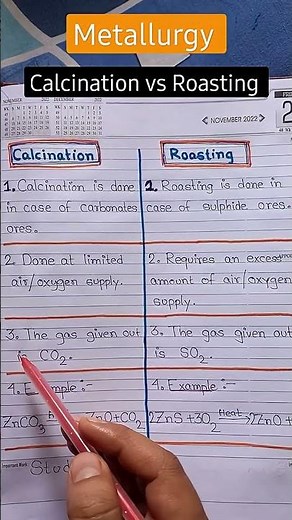 Metallurgy
Calcination vs Roasting
NOVEMBER 2022
DECEMBER 2022
NOVEMBER 2022
Calcination
Roasting
1. Calcination is done
in case of carbonates
ores.
1. Roasting is done in
case of sulphide ores.
2. Done at limited
air/oxygen supply.
2. Requires an excess
amount of air/oxygen
supply.
3. The gas given out
is CO2.
3. The gas given out
is SO2.
4. Example :-
ZnCO3 ZnO+CO2
4. Example :-
2ZnS+3O2 Heat→ 2ZnO+
Important Work
Stud